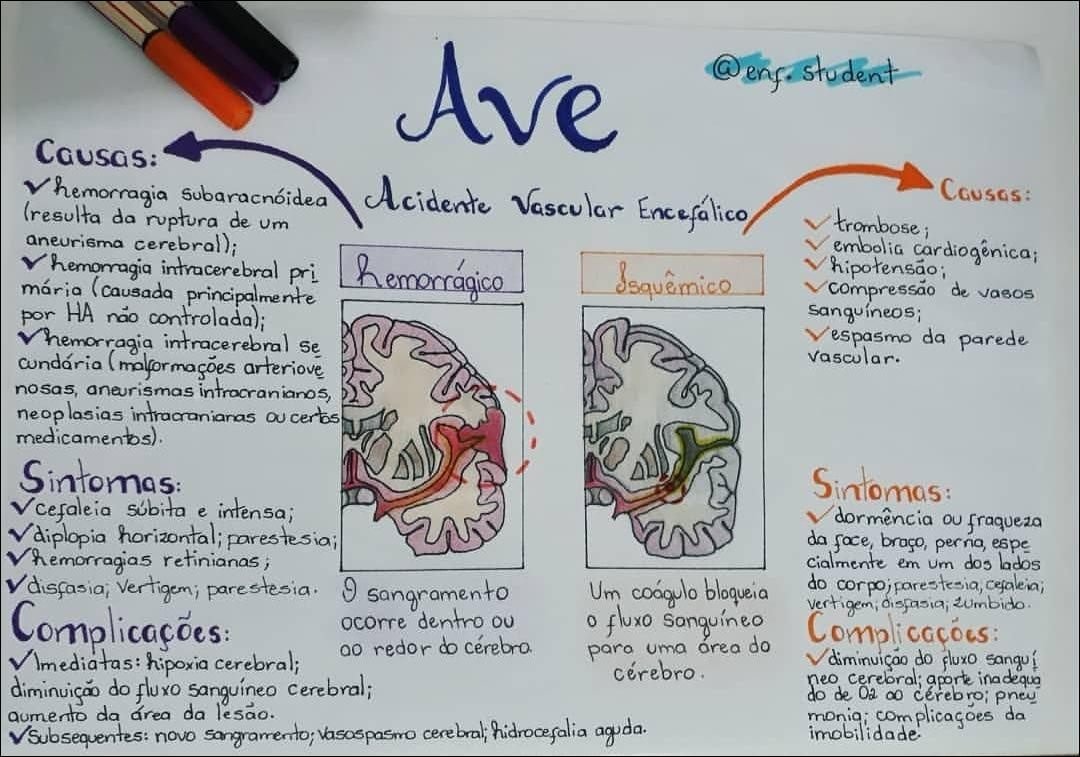 Ave
@enf.student
Acidente Vascular Encefálico
Causas:
✓hemorragia subaracnóidea
(resulta da ruptura de um
aneurisma cerebral);
✓hemorragia intracerebral pri
mária (causada principalmente
por HA não controlada);
✓hemorragia intracerebral se
cundária (malformações arteriove
nosas, aneurismas intracranianos,
neoplasias intracranianas ou certos
medicamentos).
Sintomas:
✓cefaleia súbita e intensa;
✓diplopia horizontal; parestesia;
✓hemorragias retinianas;
✓disfasia; vertigem; parestesia.
Complicações:
✓Imediatas: hipoxia cerebral;
diminuição do fluxo sanguíneo cerebral;
aumento da área da lesão.
✓Subsequentes: novo sangramento; vasospasmo cerebral; hidrocefalia aguda.
hemorrágico
O sangramento
ocorre dentro ou
ao redor do cérebro.
Isquêmico
Um coágulo bloqueia
o fluxo sanguíneo
para uma área do
cérebro.
Causas:
✓trombose;
✓embolia cardiogênica;
✓hipotensão;
✓compressão de vasos
sanguíneos;
✓espasmo da parede
vascular.
Sintomas:
✓dormência ou fraqueza
da face, braço, perna, espe
cialmente em um dos lados
do corpo; parestesia; cefaleia;
vertigem; disfasia; zumbido.
Complicações:
✓diminuição do fluxo sanguí
neo cerebral; aporte inadequa
do de O2 ao cérebro; pneu
monia; complicações da
imobilidade.